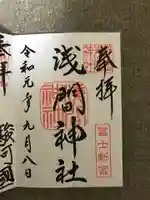 奉拝
冨士新宮
浅間神社
令和元年九月八日
駿河國